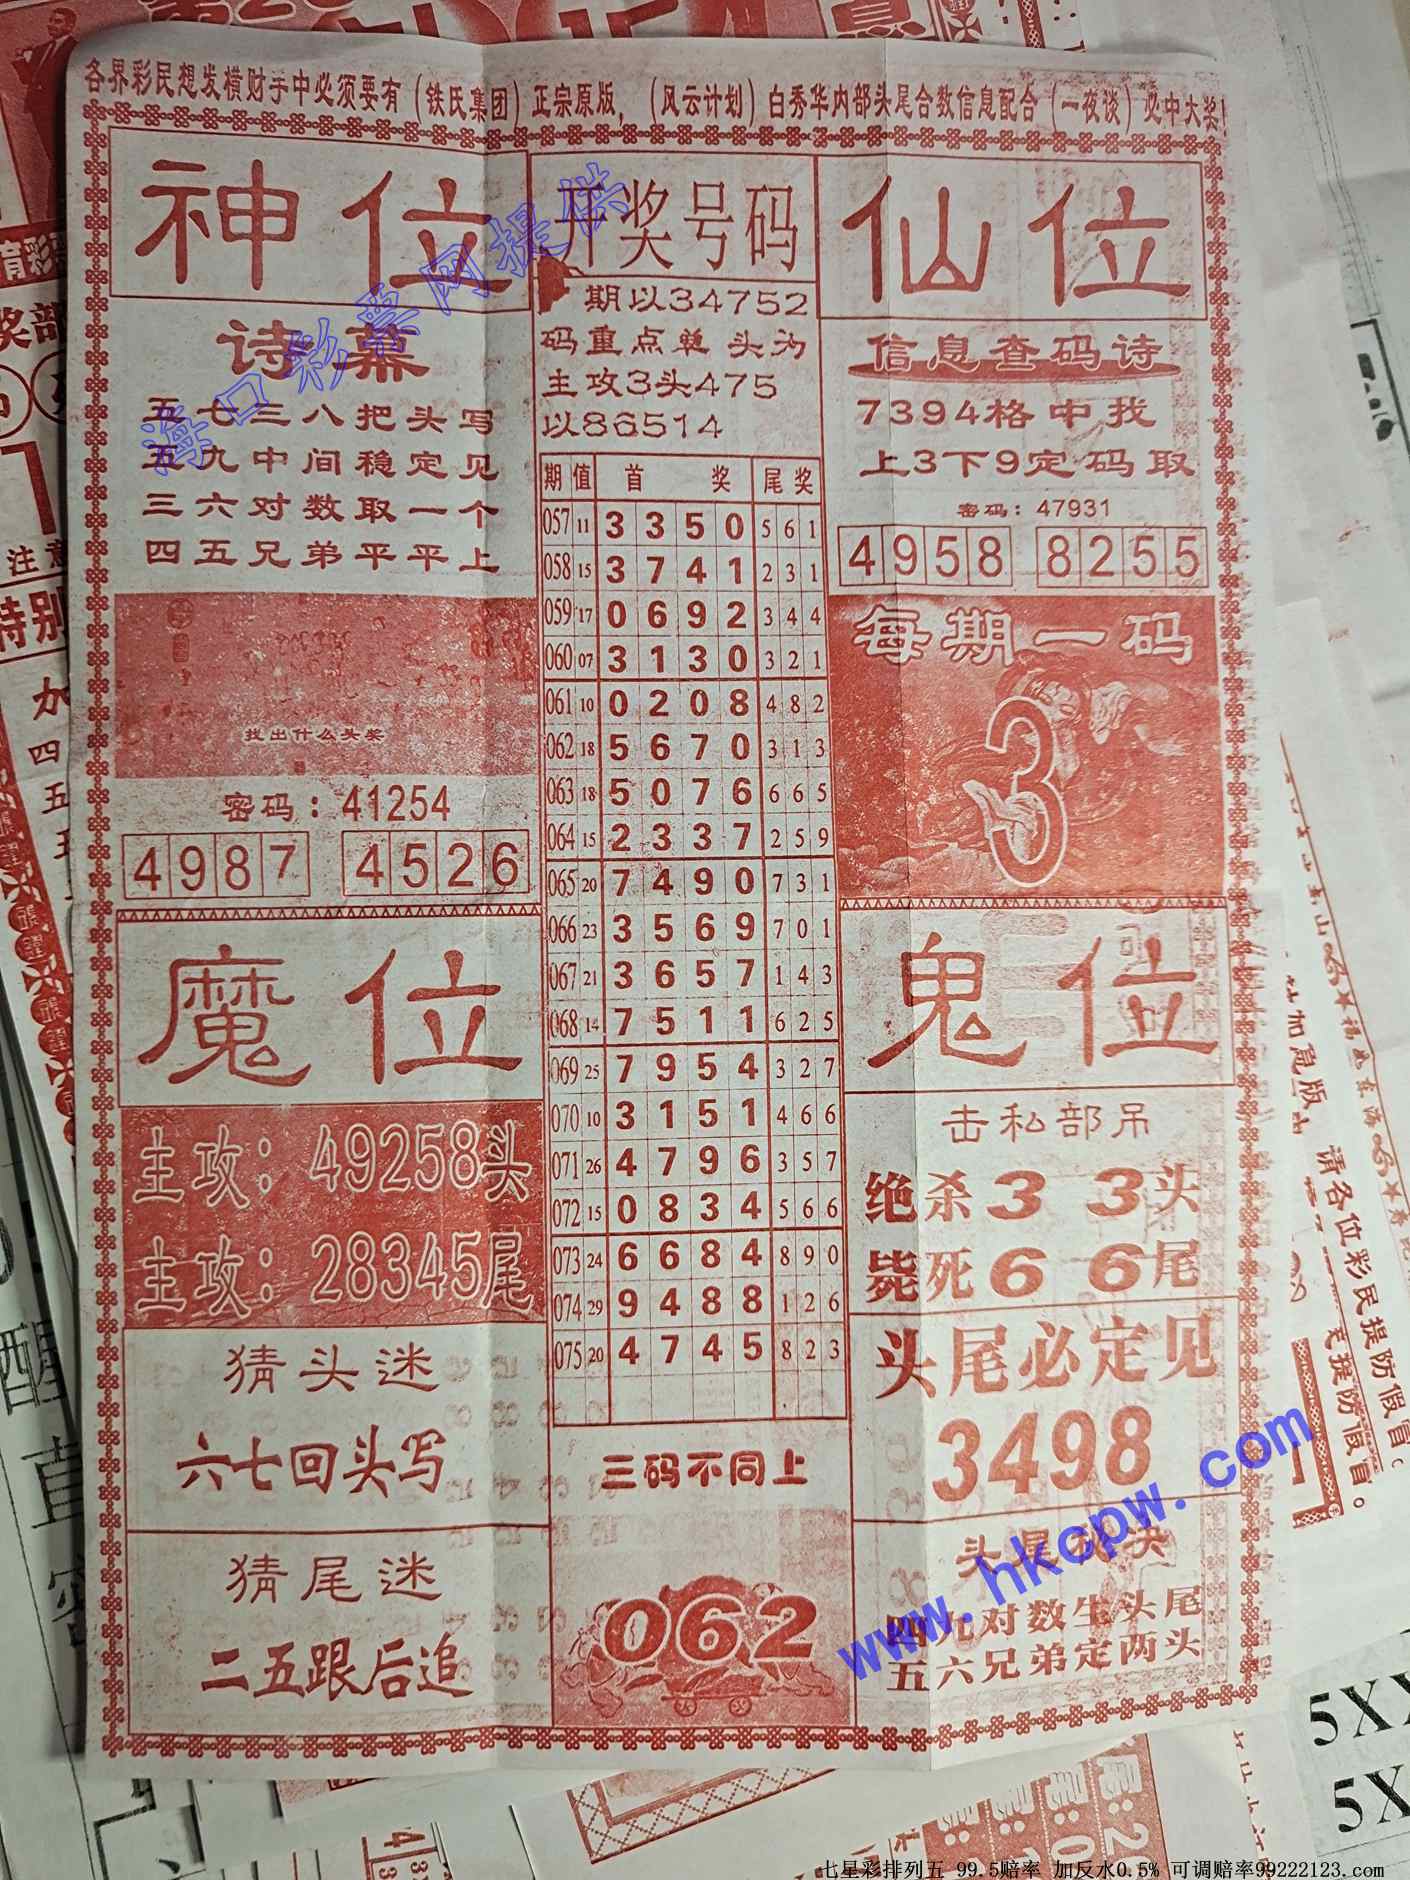 各界彩民想发横财手中必须要有（铁氏集团）正宗原版，（风云计划）白秀华内部头尾合数信息配合（一夜谈）必中大奖！
神位
诗幕
五七三八把头写
五九中间稳定见
三六对数取一个
四五兄弟平平上
找出什么头奖
密码：41254
4987 4526
开奖号码
期以34752
码重点单 头为
主攻3头475
以86514
期 值 首 奖 尾奖
057 11 3 3 5 0 5 6 1
058 15 3 7 4 1 2 3 1
059 17 0 6 9 2 3 4 4
060 07 3 1 3 0 3 2 1
061 10 0 2 0 8 4 8 2
062 18 5 6 7 0 3 1 3
063 18 5 0 7 6 6 6 5
064 15 2 3 3 7 2 5 9
065 20 7 4 9 0 7 3 1
066 23 3 5 6 9 7 0 1
067 21 3 6 5 7 1 4 3
068 14 7 5 1 1 6 2 5
069 25 7 9 5 4 3 2 7
070 10 3 1 5 1 4 6 6
071 26 4 7 9 6 3 5 7
072 15 0 8 3 4 5 6 6
073 24 6 6 8 4 8 9 0
074 29 9 4 8 8 1 2 6
075 20 4 7 4 5 8 2 3
三码不同上
062
仙位
信息查码诗
7394格中找
上3下9定码取
密码：47931
4958 8255
每期一码
3
魔位
主攻：49258头
主攻：28345尾
猜头迷
六七回头写
猜尾迷
二五跟后追
鬼位
击私部吊
绝杀3 3头
毙死6 6尾
头尾必定见
3498
头尾秘决
四九对数生头尾
五六兄弟定两头
海口彩票网提供
www.hkcpw.com
注意
特别
加
四
五
请各位彩民提防假冒。
5XX
5X
七星彩排列五 99.5赔率 加反水0.5% 可调赔率99222123.com